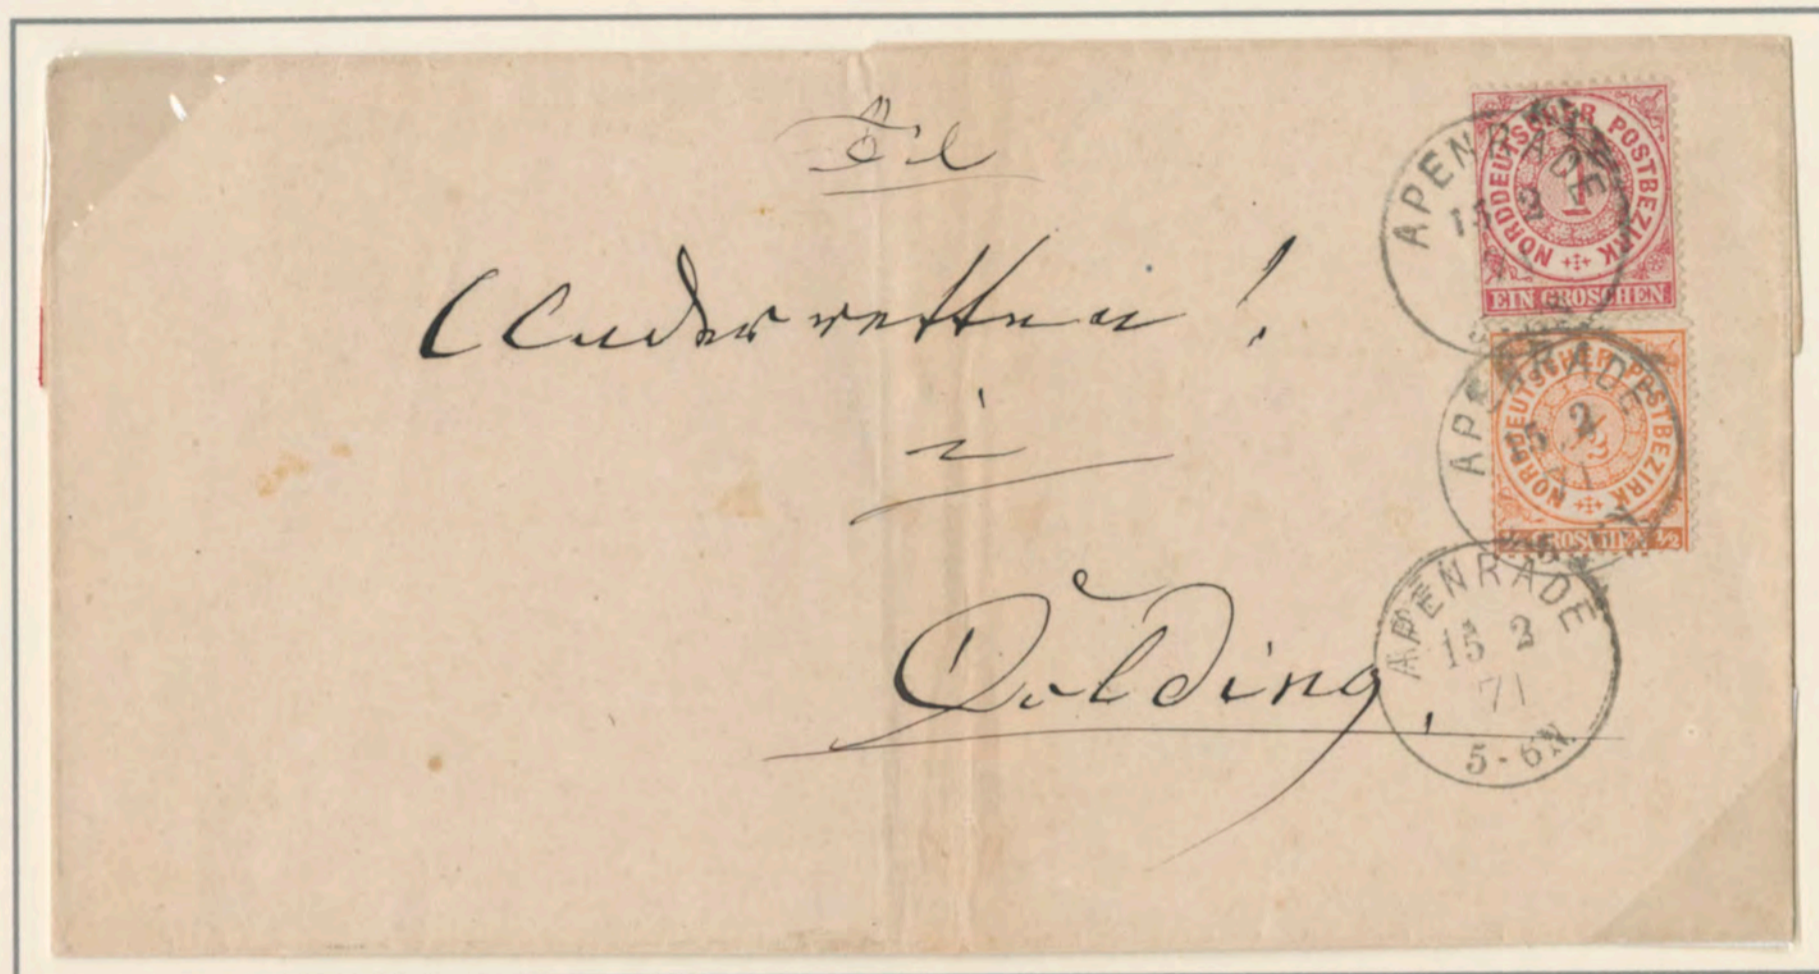 Til
Underretten!
i
Kolding.
NORDDEUTSCHER POSTBEZIRK
1
EIN GROSCHEN
APENRADE
15 2
NORDDEUTSCHER POSTBEZIRK
½
GROSCHEN ½
APENRADE
15 2
71
APENRADE
15 2
71
5-6N.